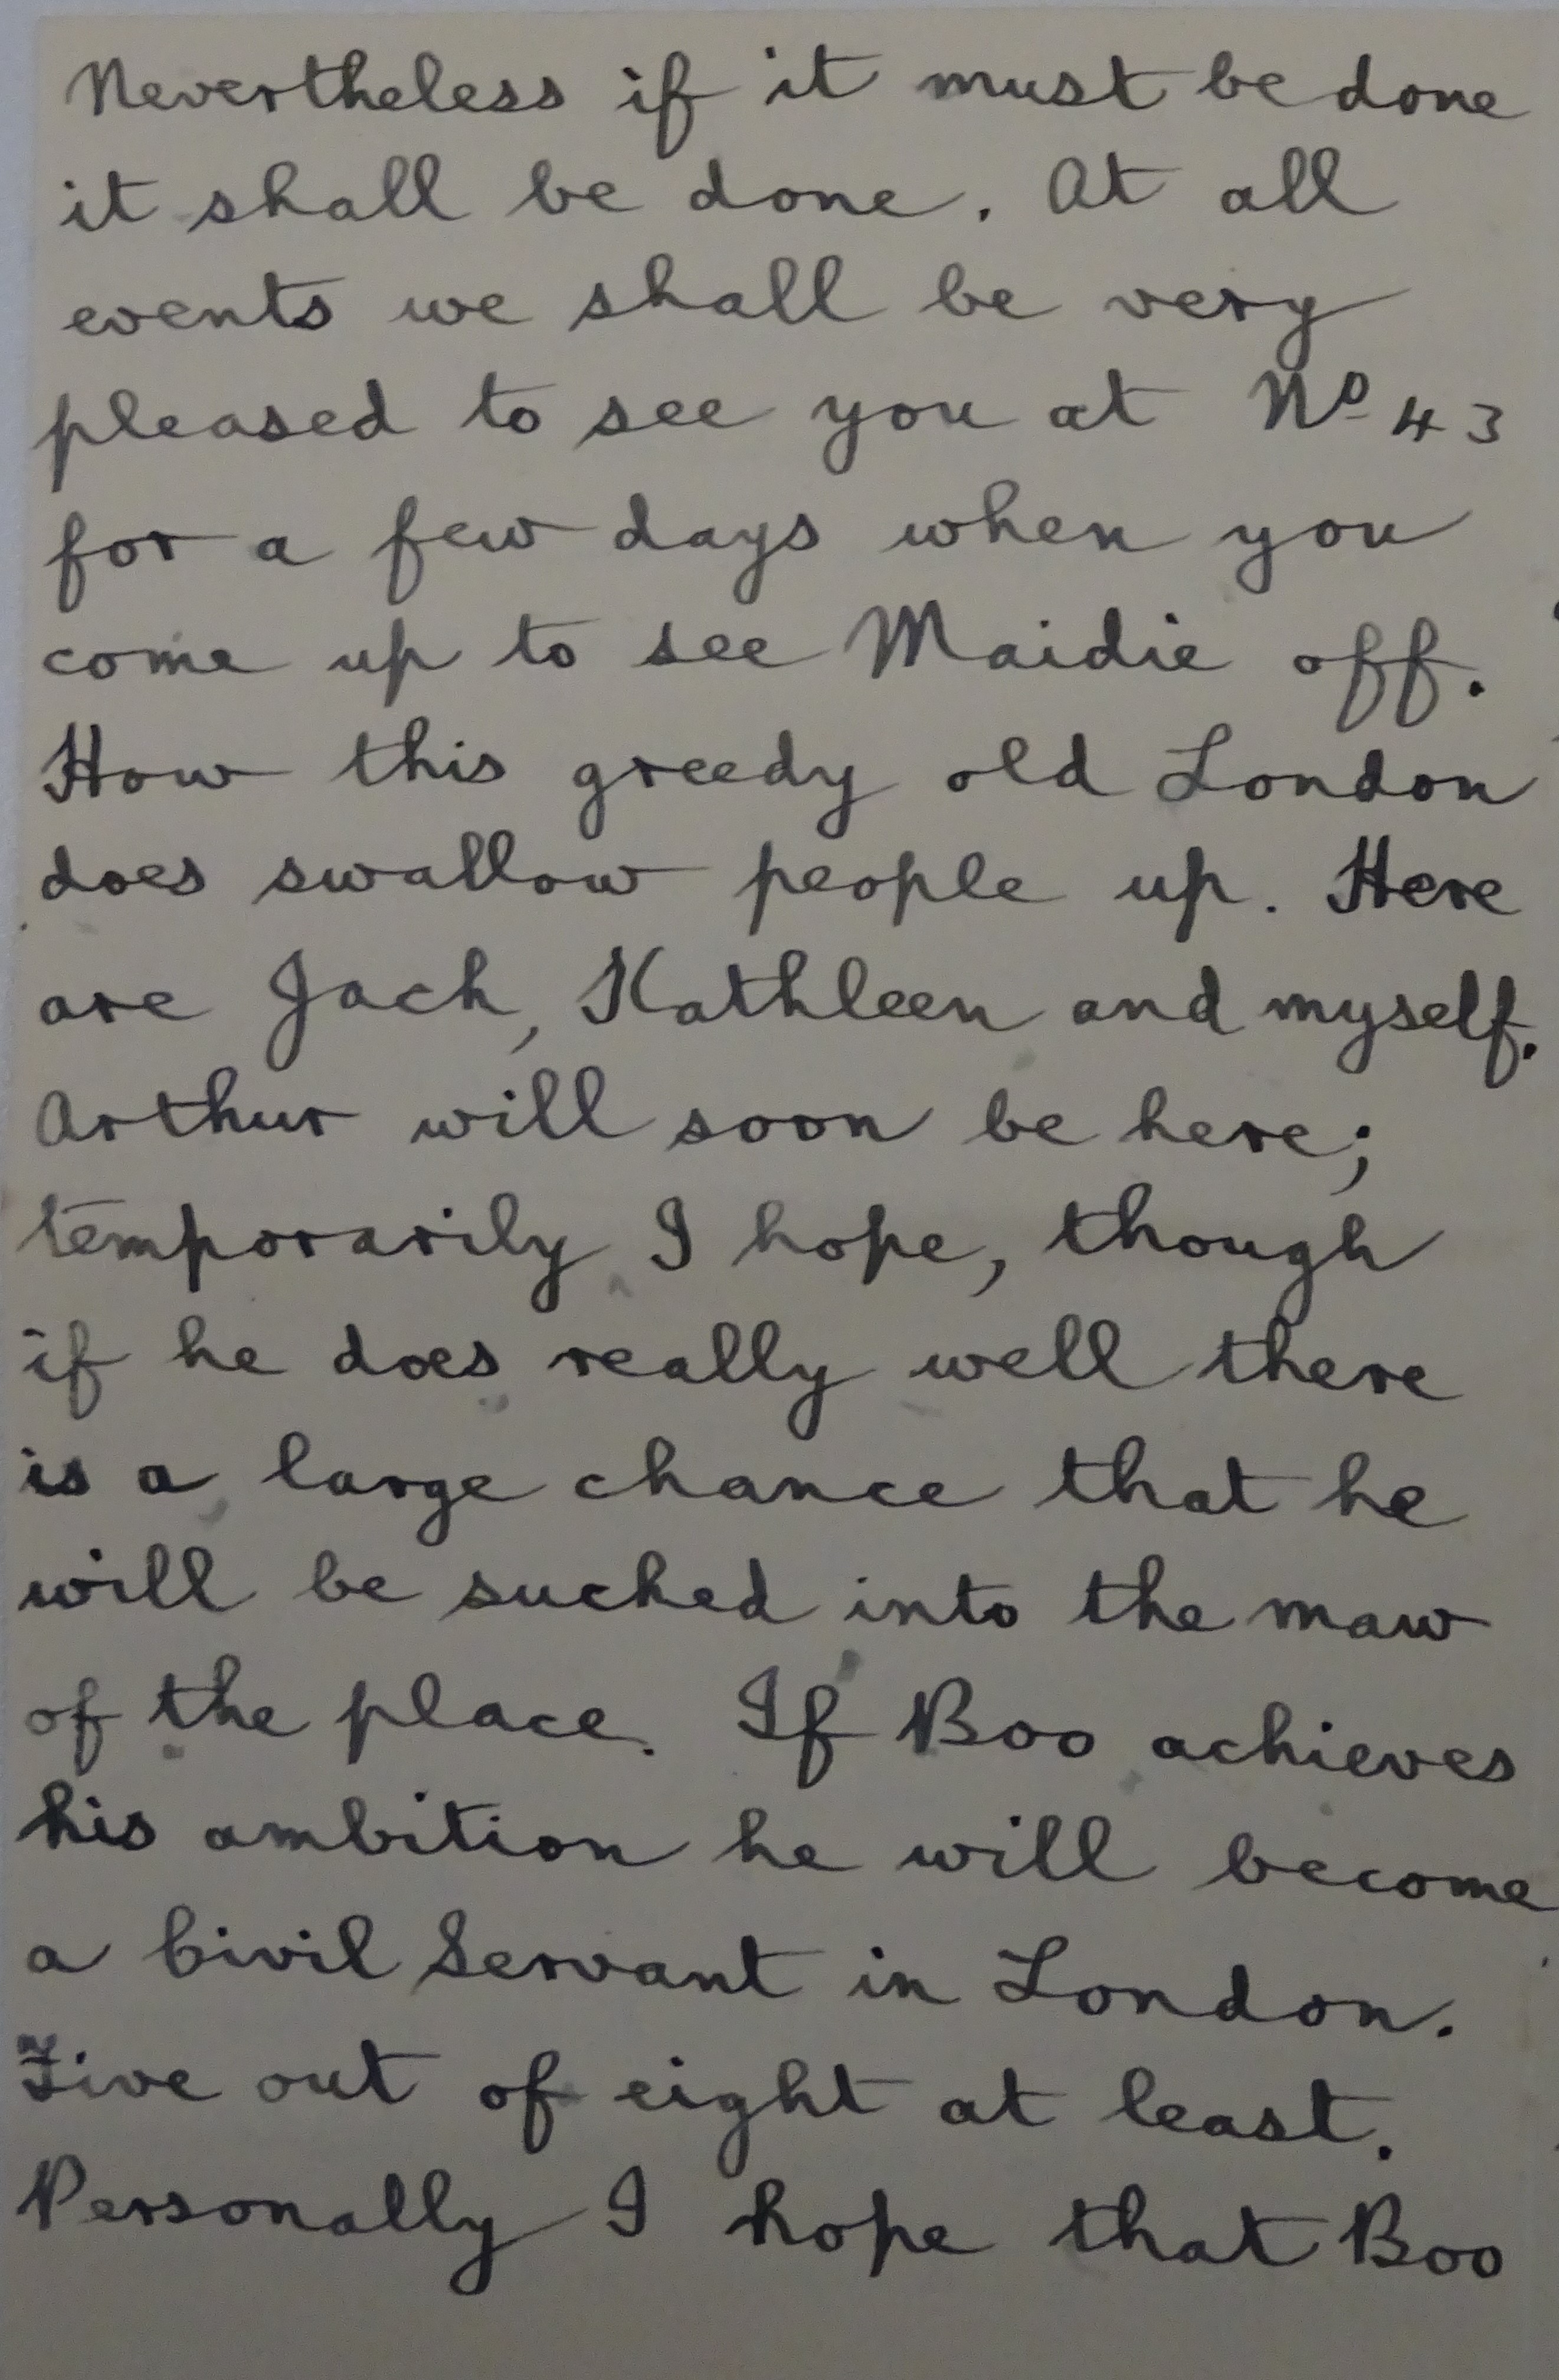 Nevertheless if it must be done
it shall be done. At all
events we shall be very
pleased to see you at Nº 43
for a few days when you
come up to see Maidie off.
How this greedy old London
does swallow people up. Here
are Jack, Kathleen and myself.
Arthur will soon be here;
temporarily I hope, though
if he does really well there
is a large chance that he
will be sucked into the maw
of the place. If Boo achieves
his ambition he will become
a Civil Servant in London.
Five out of eight at least.
Personally I hope that Boo